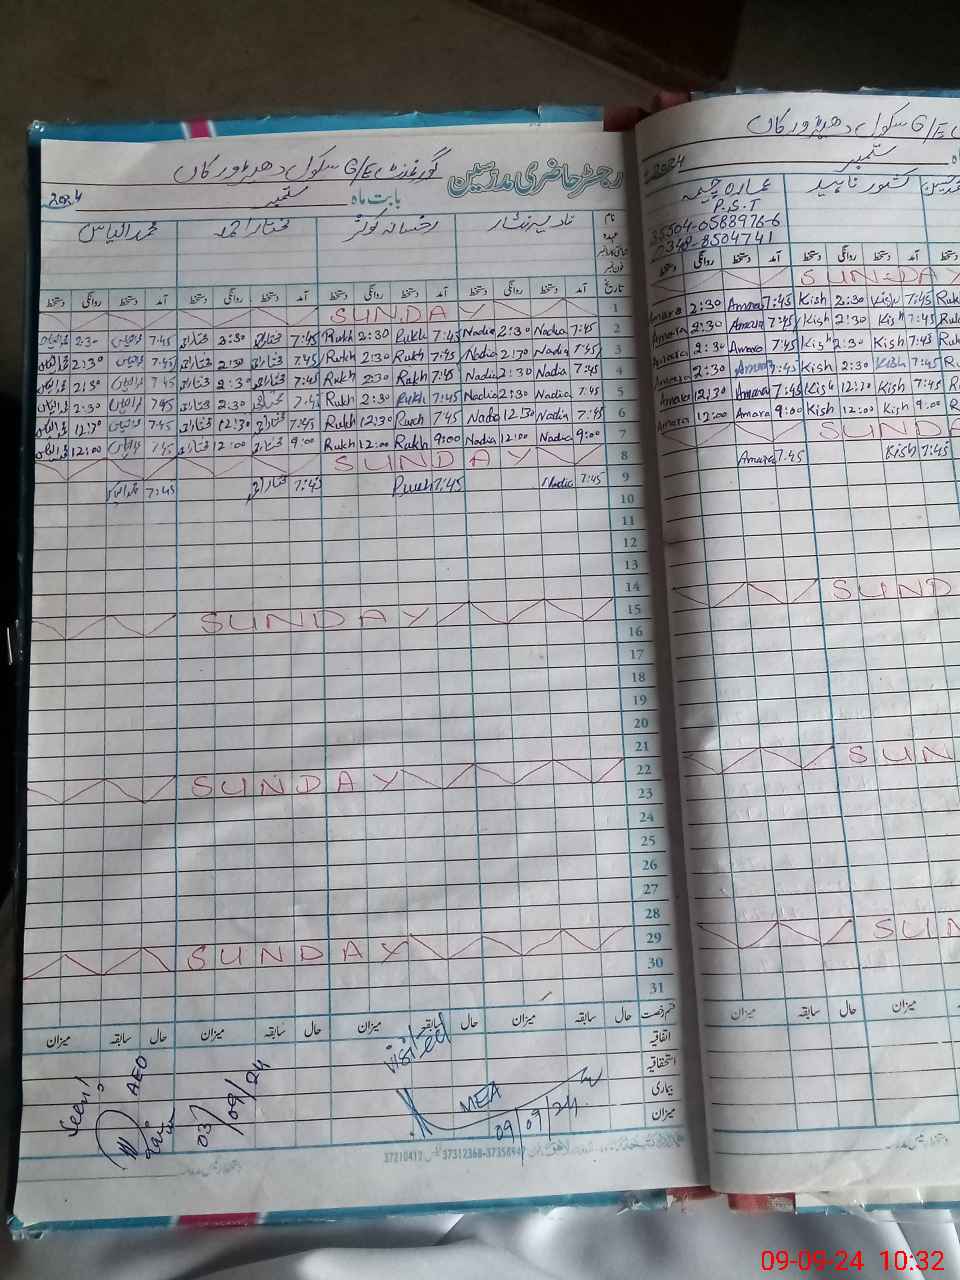 رجسٹر حاضری مدرسین
گورنمنٹ G/E سکول دھریڑ ورکاں
بابت ماہ ستمبر 2024
نام نادیہ نثار رخسانہ کوثر مختار احمد محمد الیاس
عہدہ
تاریخ آمد دستخط روانگی دستخط آمد دستخط روانگی دستخط آمد دستخط روانگی دستخط آمد دستخط روانگی دستخط
1 SUNDAY
2 7:45 Nadia 2:30 Nadia 7:45 Rukh 2:30 Rukh 7:45 2:30 7:45 2:30
3 7:45 Nadia 2:30 Nadia 7:45 Rukh 2:30 Rukh 7:45 2:30 7:45 2:30
4 7:45 Nadia 2:30 Nadia 7:45 Rukh 2:30 Rukh 7:45 2:30 7:45 2:30
5 7:45 Nadia 2:30 Nadia 7:45 Rukh 2:30 Rukh 7:45 2:30 7:45 2:30
6 7:45 Nadia 12:30 Nadia 7:45 Rukh 12:30 Rukh 7:45 12:30 7:45 12:30
7 9:00 Nadia 12:00 Nadia 9:00 Rukh 12:00 Rukh 9:00 12:00 7:45 12:00
8 SUNDAY
9 7:45 Nadia 7:45 Rukh 7:45 7:45
10
11
12
13
14
15 SUNDAY
16
17
18
19
20
21
22 SUNDAY
23
24
25
26
27
28
29 SUNDAY
30
31
قسم رخصت حال سابقہ میزان حال سابقہ میزان حال سابقہ میزان حال سابقہ میزان
اتفاقیہ
استحقاقیہ
بیماری
میزان
visited
MEA
09/09/24
Seen!
AEO
03/09/24
37210412 37312368-37358947
G/E سکول دھریڑ ورکاں
ستمبر 2024
کشور ناہید عمارہ چیمہ
P.S.T
35504-0588976-6
8504741
آمد دستخط روانگی دستخط آمد دستخط روانگی دستخط
SUNDAY
7:45 Kish 2:30 Kish 7:45 Amara 2:30 Amara
7:45 Kish 2:30 Kish 7:45 Amara 2:30 Amara
7:45 Kish 2:30 Kish 7:45 Amara 2:30 Amara
7:45 Kish 2:30 Kish 7:45 Amara 2:30 Amara
7:45 Kish 12:30 Kish 7:45 Amara 12:30 Amara
9:00 Kish 12:00 Kish 9:00 Amara 12:00 Amara
SUNDA
7:45 Kish 7:45 Amara
SUND
SUN
SUN
حال سابقہ میزان
09-09-24 10:32